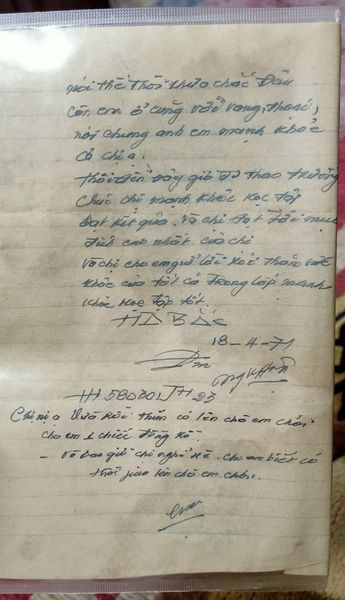 nói thế thôi chưa chắc đâu
còn em ở cũng vẫn vang, thoải,
nói chung anh em mạnh khỏe
cả chị ạ.
Thôi đến đây giờ đi thao trường
Chúc chị mạnh khỏe học tập
đạt kết quả. Và chị đạt tới mục
điểm cao nhất của chị
Và chị cho em gửi lời hỏi thăm sức
khỏe của tất cả trong lớp mạnh
khỏe học tập tốt.
HÀ BẮC
18-4-71
Em
HH 580001 JH 25
Chị nếu vừa rồi thăm có lên chỗ em chơi
cho em 1 chiếc đồng hồ.
- Và bao giờ chị nghỉ hè. cho em biết có
thời gian lên chỗ em chơi.
em